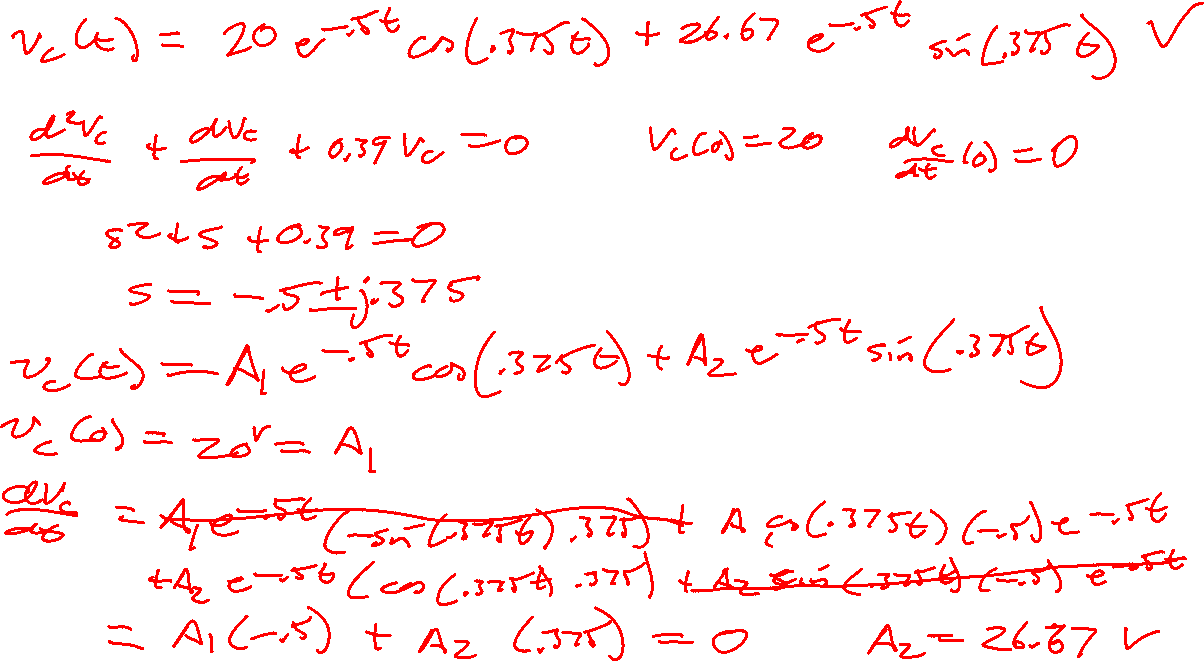 v_c(t) = 20 e^{-.5t} cos(.375t) + 26.67 e^{-.5t} sin(.375t) ✓
d²v_c/dt + dv_c/dt + 0.39 v_c = 0    v_c(0) = 20    dv_c/dt (0) = 0
s² + s + 0.39 = 0
s = -.5 ± j.375
v_c(t) = A_1 e^{-.5t} cos(.325t) + A_2 e^{-.5t} sin(.375t)
v_c(0) = 20^v = A_1
dv_c/dt = A_1 e^{-.5t} (-sin(.375t) .375) + A cos(.375t) (-.5) e^{-.5t}
+ A_2 e^{-.5t} (cos(.375t) .375) + A_2 sin(.375t) (-.5) e^{-.5t}
= A_1(-.5) + A_2 (.375) = 0    A_2 = 26.67 V